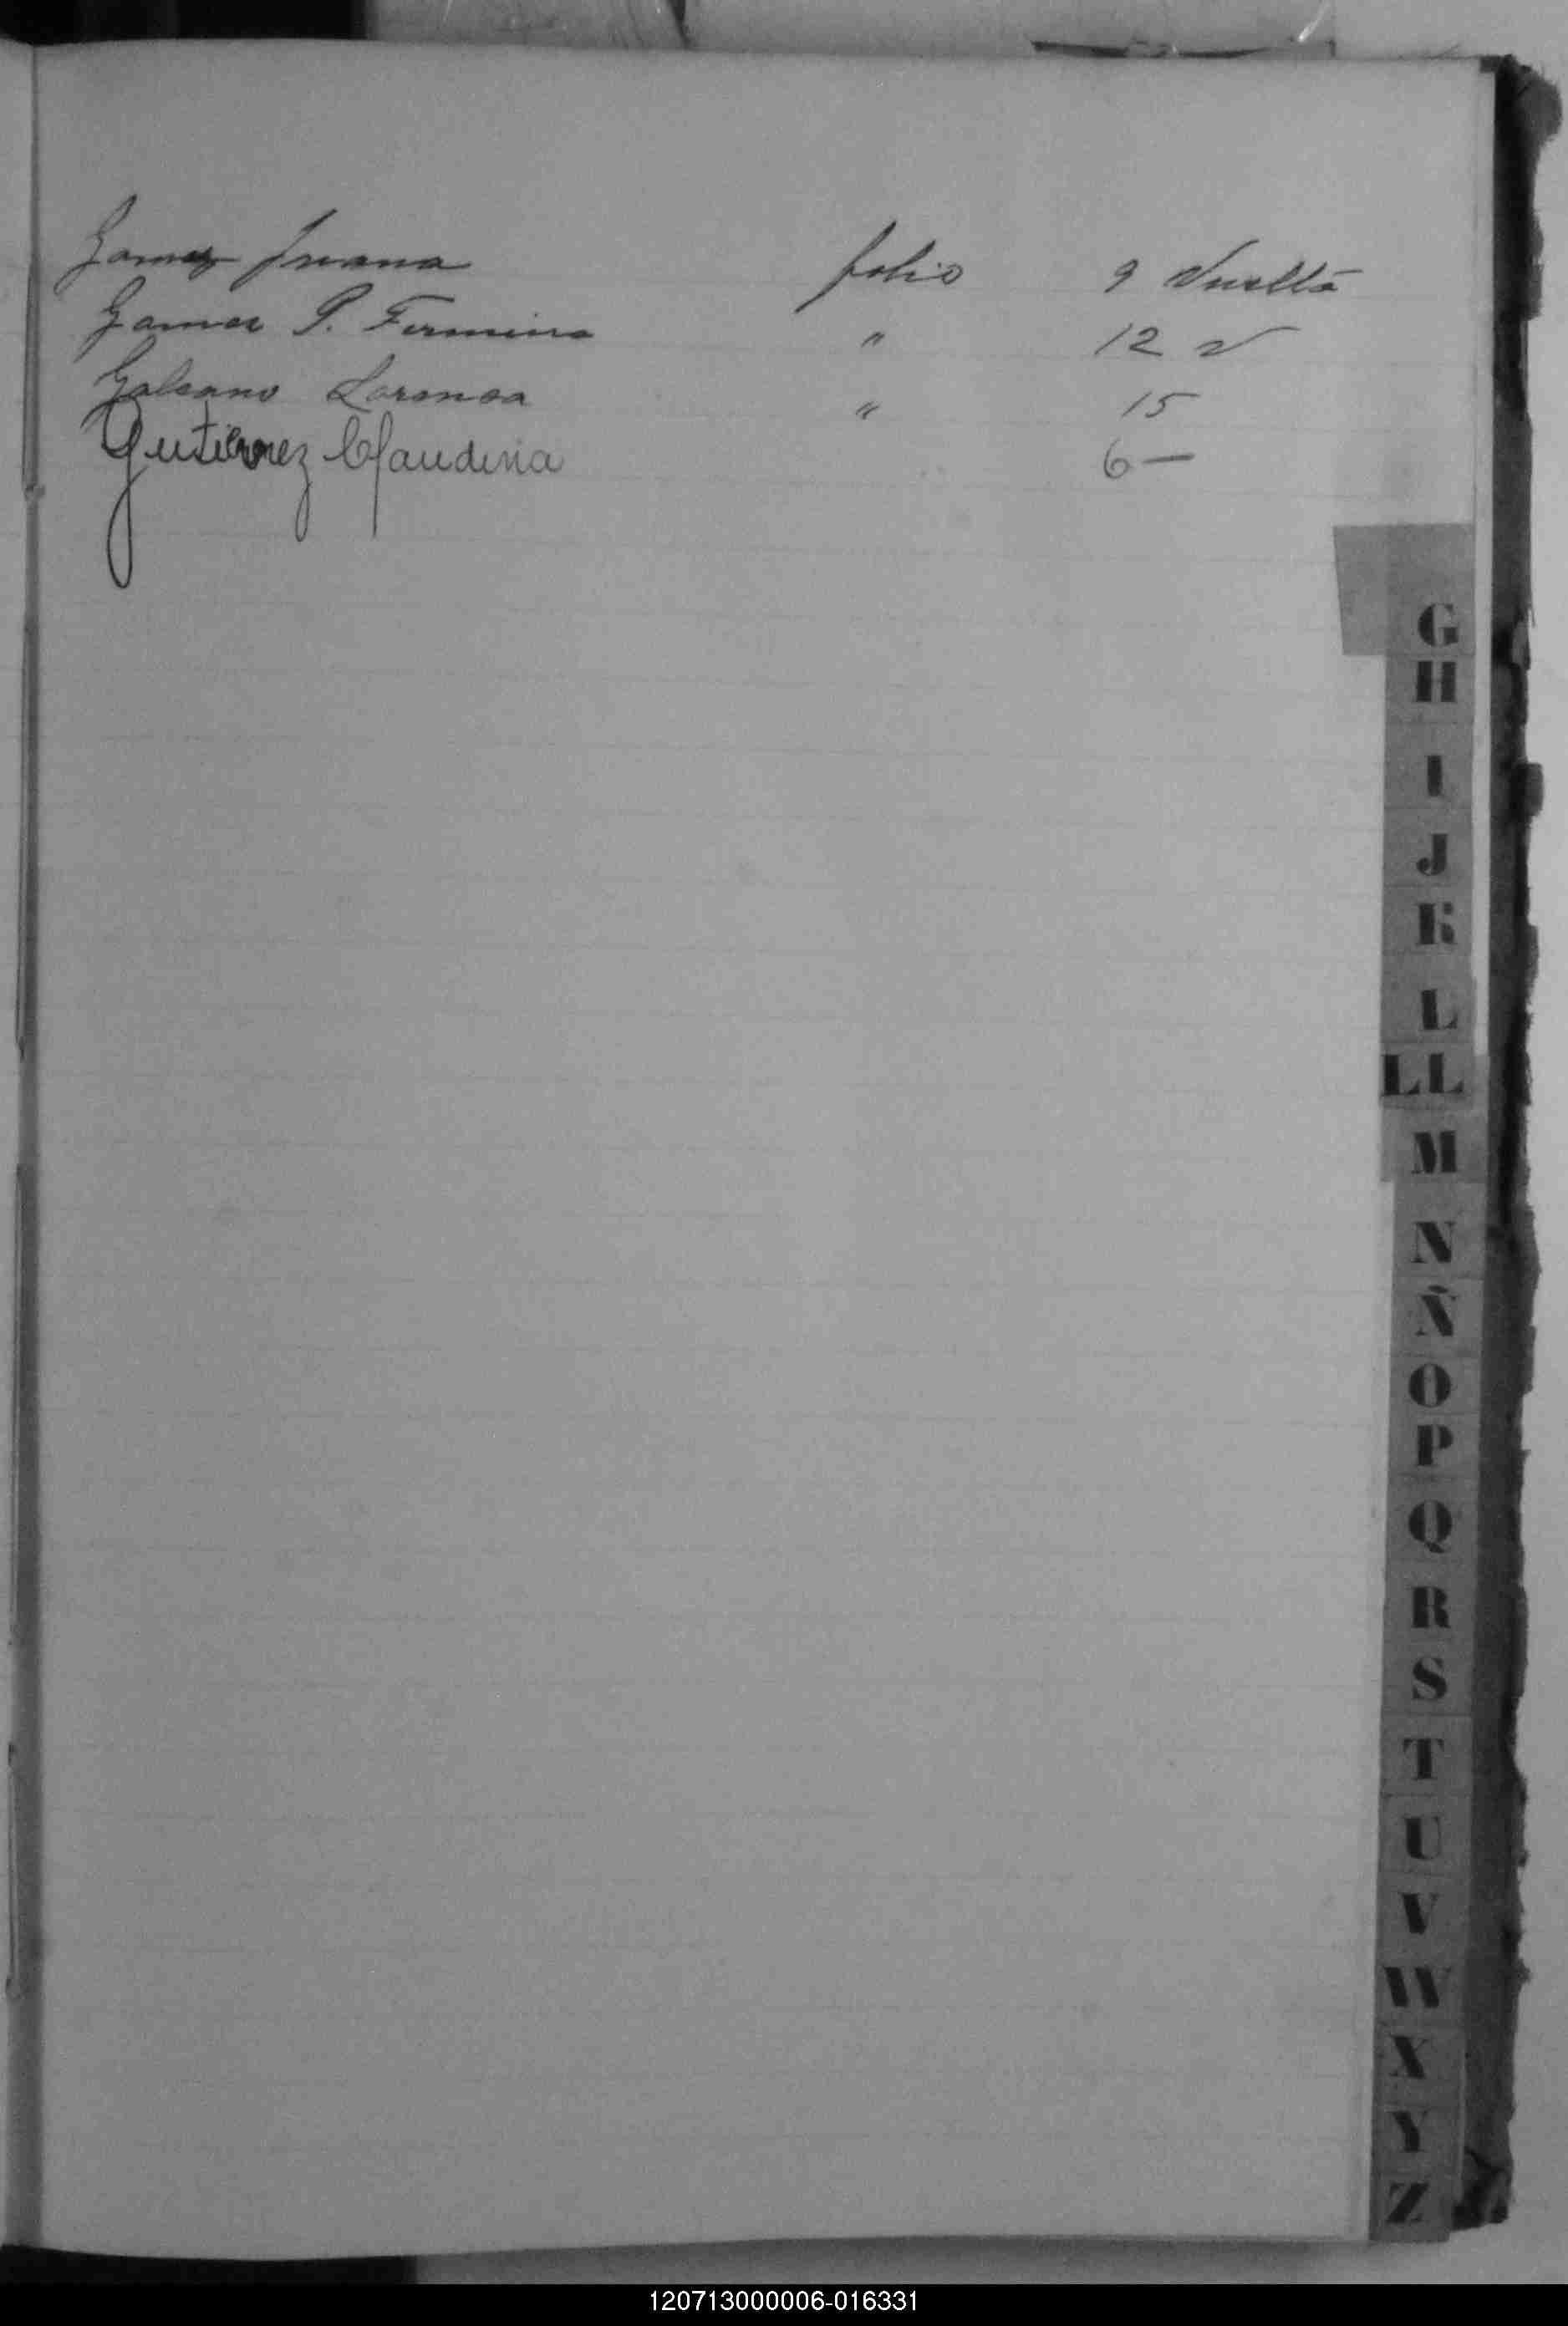 Gamez Juana folio 9 Vuelta
Gamez P. Fermina " 12 v
Galeano Lorensa " 15
Gutierrez Claudina 6 —
G
H
I
J
K
L
LL
M
N
Ñ
O
P
Q
R
S
T
U
V
W
X
Y
Z
120713000006-016331